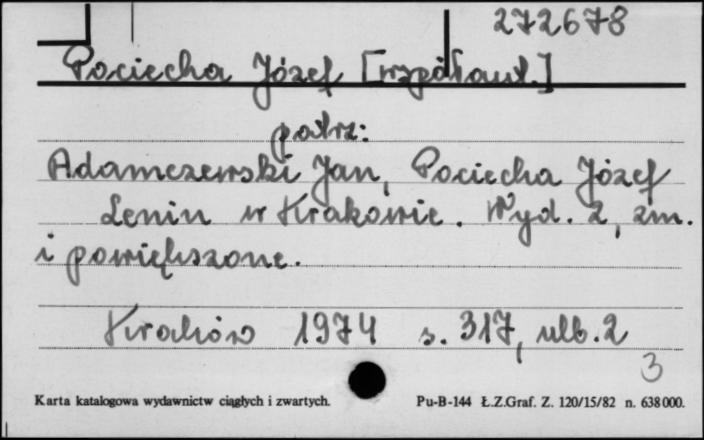 272678
Pociecha Józef [współaut.]
patrz:
Adamczewski Jan, Pociecha Józef
Lenin w Krakowie. Wyd. 2, zm.
i powiększone.
Kraków 1974 s. 317, nlb. 2
3
Karta katalogowa wydawnictw ciągłych i zwartych. Pu-B-144 Ł.Z.Graf. Z. 120/15/82 n. 638000.